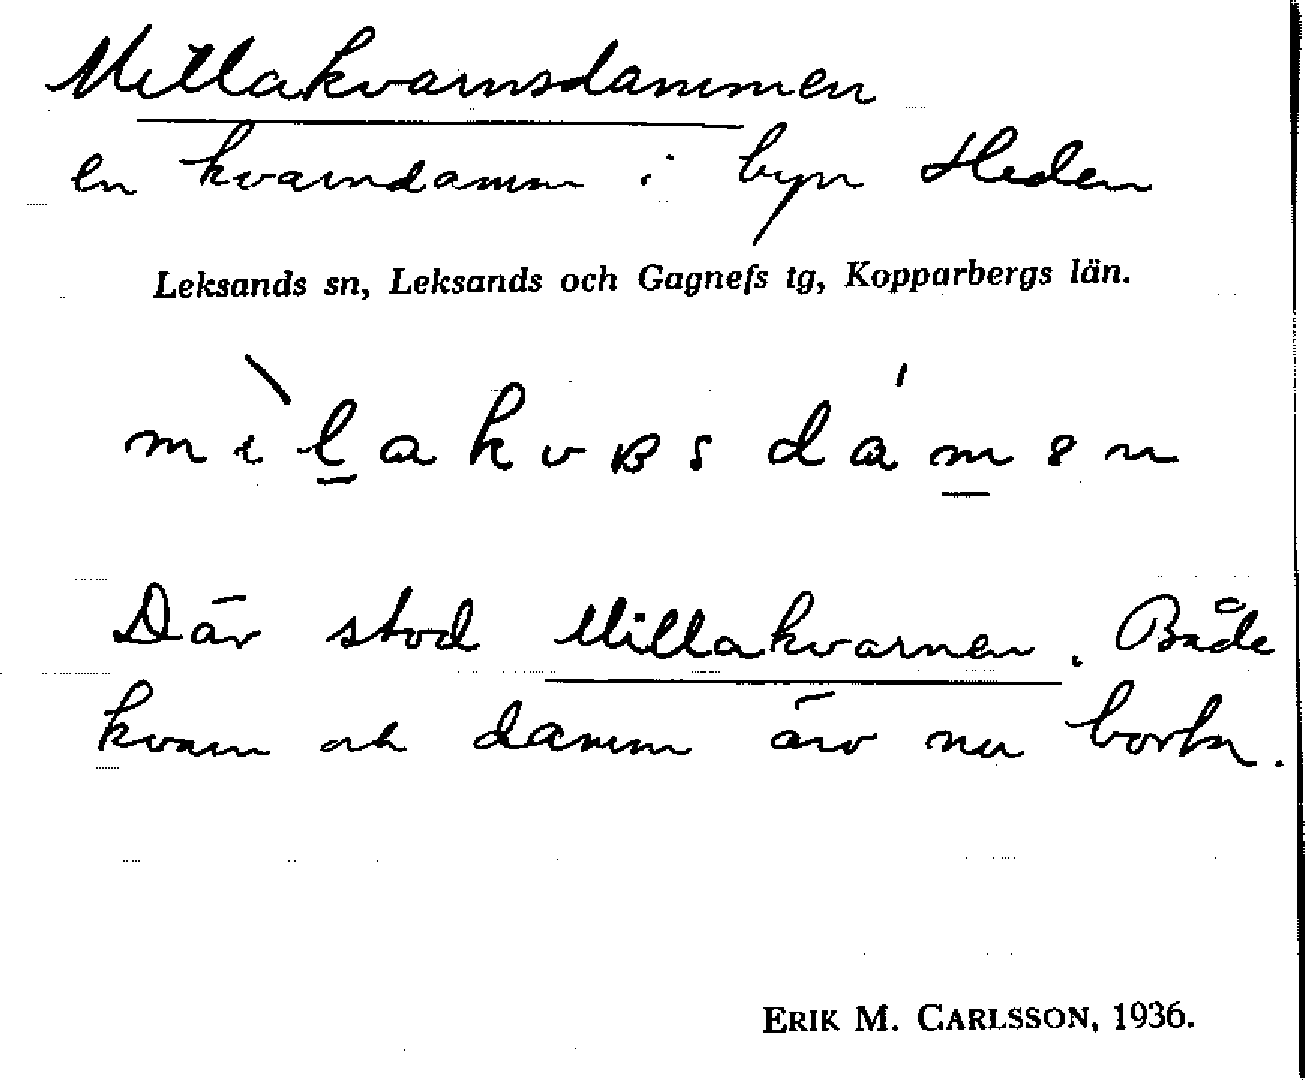 Millakvarnsdammen
en kvarndamm i byn Heden
Leksands sn, Leksands och Gagnefs tg, Kopparbergs län.
Där stod Millakvarnen. Både
kvarn och damm äro nu borta.
ERIK M. CARLSSON, 1936.